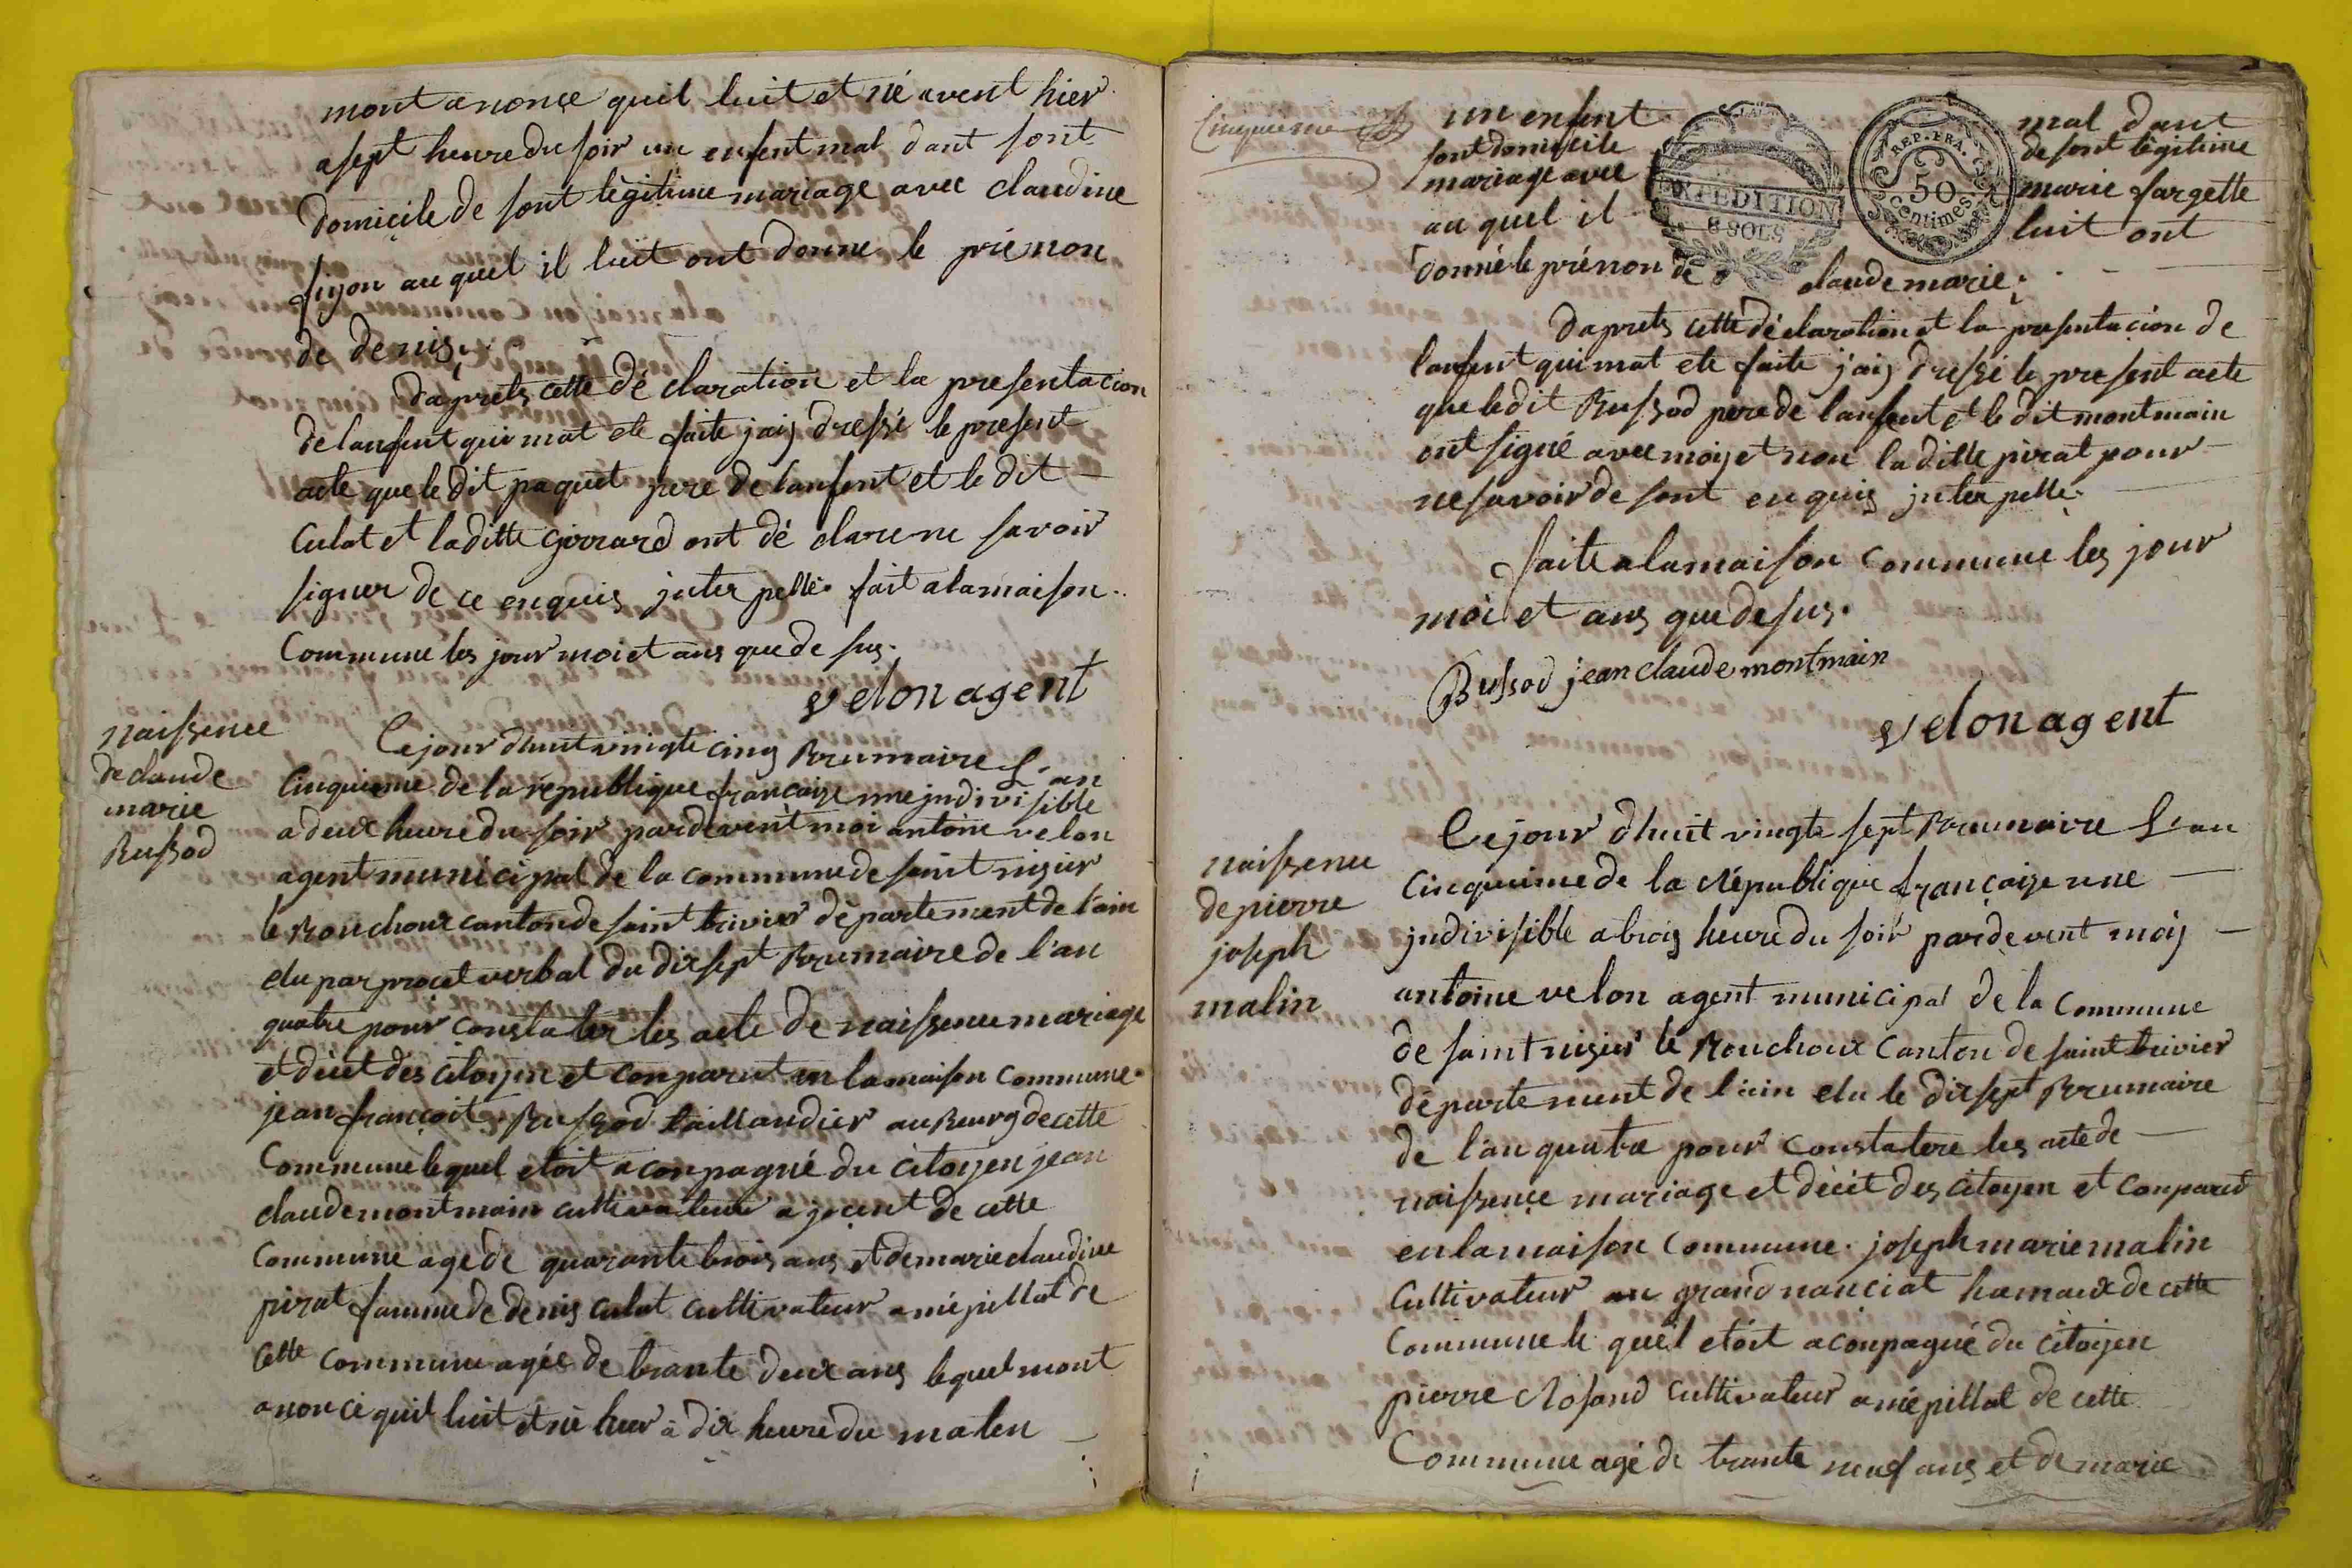 mont anonçe quil luit et né avent hier
a sept heure du soir un enfent mal dant sont
domiçile de sont légitime mariage avec claudine
au quel il luit ont donne le prénon
de denis
daprets cette dé claration et la presentacion
de lanfent qui mat ete faite jaij dressé le present
acte que le dit paquet pere de lanfent et le dit
Culat et laditte girrard ont dé clare ne savoir
signer de ce enquis jnter pellé fait a la maison
Commune les jour moi et ans que de sus.
velon agent
naissence
de claude
marie
Bussod
Ce jour dhuit vingte cinq Brumaire L'an
Cinquieme de la république françaize une jndivisible
a deux heure du soir pardevent moi antoine velon
agent municipal de la commune de saint nizier
le Bouchoux canton de saint trivier département de l'ain
elu par proçet verbal du dixsept Brumaire de l'an
quatre pour constater les acte de naissence mariage
et déçet des çitoyen et conparut en la maison commune
jean françoit Bussod taillandier au Bourg de cette
Commune lequel etoit a conpagné du çitoyen jean
claude montmain cultivateur a joint de cette
Commune agé de quarante trois ans et de marie claudine
pirat famme de denis culat cultivateur a niépillat de
cette commune agée de trante deux ans lequel mont
anonce quil luit et né hier à dix heure du maten
Cinquieme
un enfent mal dant
sont domiçile de sont légitime
mariage avec marie fargette
au quel il luit ont
donné le prénon de claude marie
EXPEDITION
8 SOLS
REP. FRA.
50
Centimes
daprets cette dé claration et la presentaçion de
lanfent qui mat ete faite j'aij dressé le present acte
que ledit Bussod pere de lanfent et le dit montmain
ont signé avec moy et non la ditte pirat pour
ne savoir de sont enquis jnter pellé
faite a la maison Commune les jour
moi et ans que de sus.
Bussod jean claude montmain
velon agent
naissence
de pierre
joseph
malin
Ce jour d'huit vingte sept Brumaire L'an
Cinquime de la République françaize une
jndivisible a trois heure du soir pardevent moij
antoine velon agent municipal de la Commune
de saint nizier le Bouchoux Canton de saint trivier
département de l'ain elu le dixsept Brumaire
de l'an quatre pour constatere les acte de
naissençe mariage et déçet des çitoyen et conparut
en la maison Commune. joseph marie malin
Cultivateur au grand nançiat hamaux de cette
Commune le quel etoit a conpagné du çitoyen
pierre cultivateur a niépillat de cette
Commune agé de trante neuf ans et de marie